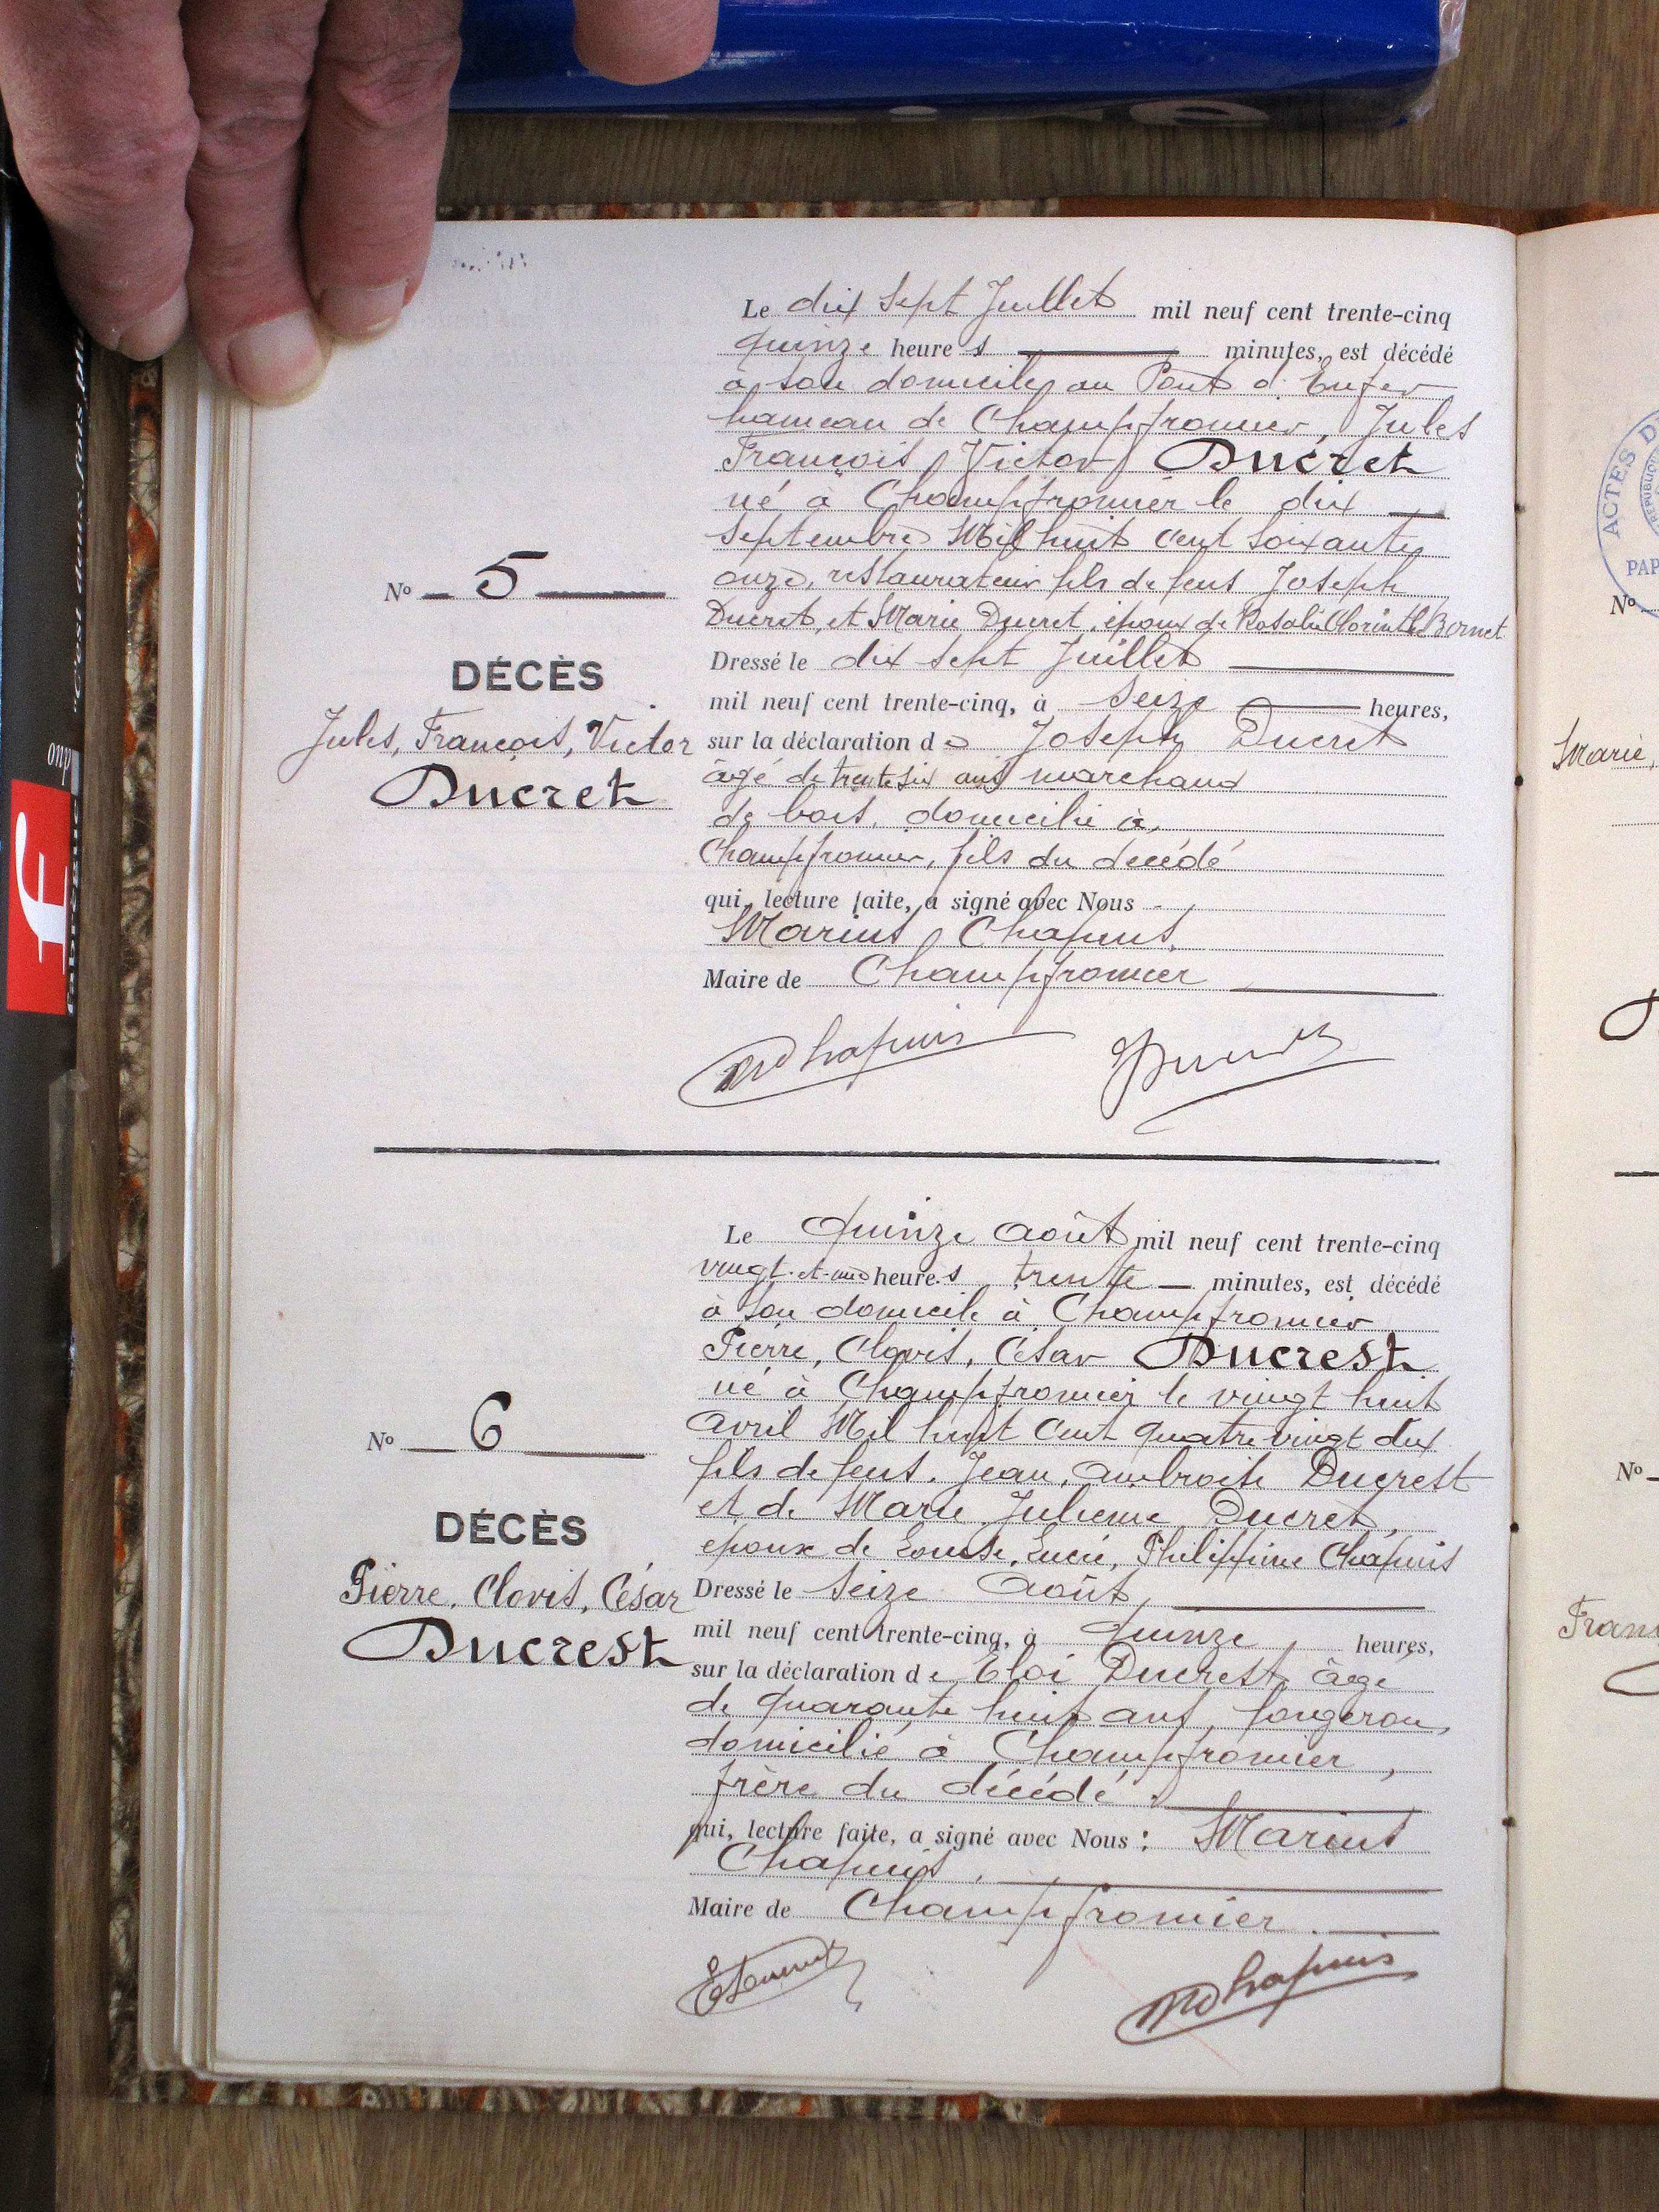 Le dix sept Juillet mil neuf cent trente-cinq
quinze heures minutes, est décédé
à son domicile au Pont d'Enfer
hameau de Champfromier, Jules
François, Victor, Ducret
né à Champfromier le dix
Septembre Mil huit cent soixante
onze, restaurateur fils de feus Joseph
Ducret, et Marie Ducret, époux de Rosalie Clorinthe Bornet
No 5
DÉCÈS
Jules, François, Victor
Ducret
Dressé le dix sept Juillet
mil neuf cent trente-cinq, à Seize heures,
sur la déclaration de Joseph Ducret
âgé de trente six ans marchand
de bois, domicilié à
Champfromier, fils du décédé
qui, lecture faite, a signé avec Nous
Marius Chapuis,
Maire de Champfromier
MChapuis
Le quinze août mil neuf cent trente-cinq
vingt-et-une heures trente minutes, est décédé
à son domicile à Champfromier
Pierre, Clovis, César Ducrest
né à Champfromier le vingt huit
avril Mil huit cent quatre vingt dix
fils de feus, Jean, Ambroise Ducrest
et de Marie Julienne Ducret,
époux de Louise, Lucie, Philippine Chapuis
No 6
DÉCÈS
Pierre, Clovis, César
Ducrest
Dressé le seize août,
mil neuf cent trente-cinq, à quinze heures,
sur la déclaration de Eloi Ducrest, âgé
de quarante huit ans, forgeron,
domicilié à Champfromier,
frère du décédé.
qui, lecture faite, a signé avec Nous : Marius
Chapuis,
Maire de Champfromier.
MChapuis
ACTES D
PAP
No
Marie,
No